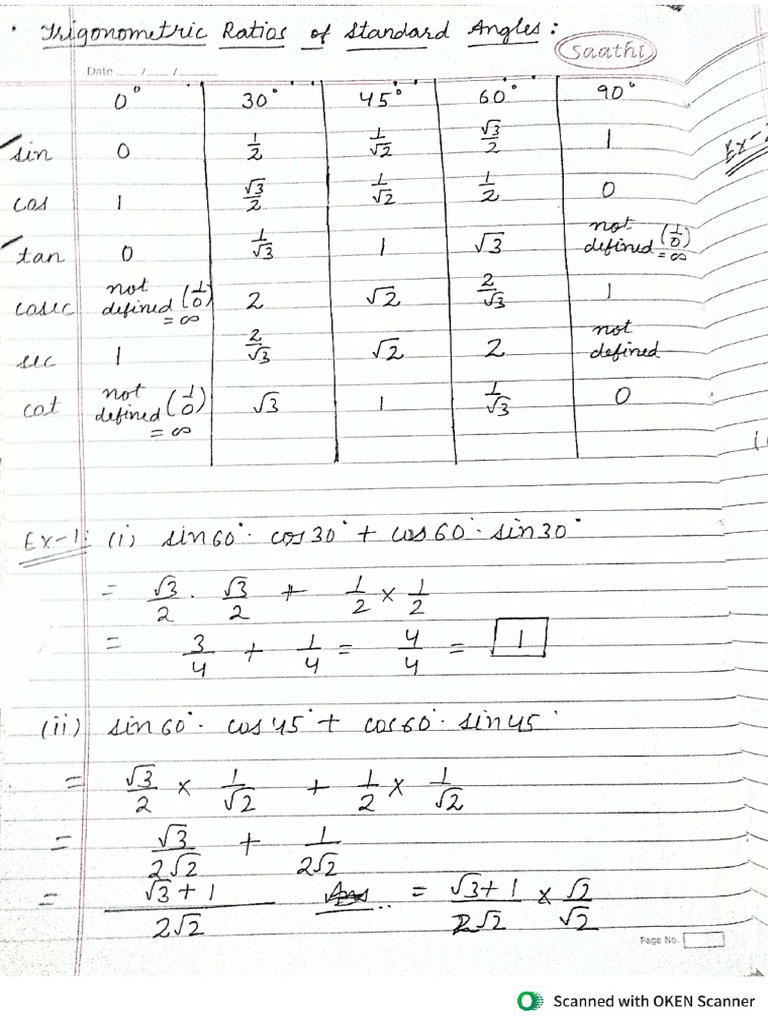 • Trigonometric Ratios of Standard Angles:
Saathi
Date ___ / ___ / ___
0° 30° 45° 60° 90°
sin 0 1/2 1/√2 √3/2 1
cos 1 √3/2 1/√2 1/2 0
tan 0 1/√3 1 √3 not defined (1/0) = ∞
cosec not defined (1/0) = ∞ 2 √2 2/√3 1
sec 1 2/√3 √2 2 not defined
cot not defined (1/0) = ∞ √3 1 1/√3 0
Ex-1: (i) sin60°. cos30° + cos60°. sin30°
= √3/2 . √3/2 + 1/2 × 1/2
= 3/4 + 1/4 = 4/4 = 1
(ii) sin60°. cos45° + cos60°. sin45°
= √3/2 × 1/√2 + 1/2 × 1/√2
= √3/2√2 + 1/2√2
= √3+1/2√2 Ans = √3+1/2√2 × √2/√2
Page No.
Scanned with OKEN Scanner